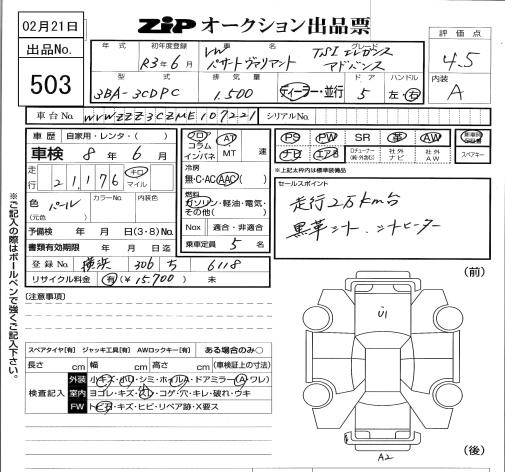 02月21日
ZIP オークション出品票
評価点
4.5
内装
A
出品No.
503
年式 初年度登録 車名 グレード
R3年6月 VW パサートヴァリアント TSI エレガンス アドバンス
型式 排気量 ドア ハンドル
3BA-3CDPC 1.500 ディーラー・並行 5 左・右
車台No. WVWZZZ3CZME107221 シリアルNo.
車歴 自家用・レンタ・( )
車検 8年 6月
走行 21,176 キロ マイル
色 パール カラーNo. 内装色
(元色)
予備検 年 月 日(3・8)No.
書類有効期限 年 月 日迄
登録No. 横浜 306 ち 6118
リサイクル料金 有(¥15.700) 未
フロア コラム インパネ AT MT 速
冷房
無・C・AC・AAC
燃料
ガソリン・軽油・電気・その他( )
Nox 適合・非適合
乗車定員 5 名
PS PW SR 革 AW
ナビ エアB Dチューナー (純・外含む) 社外ナビ 社外AW
新車時保証書 スペアキー
*上記太枠内は標準装備品
セールスポイント
走行2万km台
黒革シート、シートヒーター
[注意事項]
スペアタイヤ[有] ジャッキ工具[有] AWロックキー[有] ある場合のみ○
長さ cm 幅 cm 高さ cm (車検証上の寸法)
検査記入
外装 小キズ・小凹・シミ・ホイルA・ドアミラー(A・ワレ)
室内 ヨゴレ・キズ・スレ・コゲ・穴・キレ・破れ・ウキ
FW トビ石・キズ・ヒビ・リペア跡・X要ス
※ご記入の際はボールペンで強くご記入下さい。
(前)
U1
A2
(後)